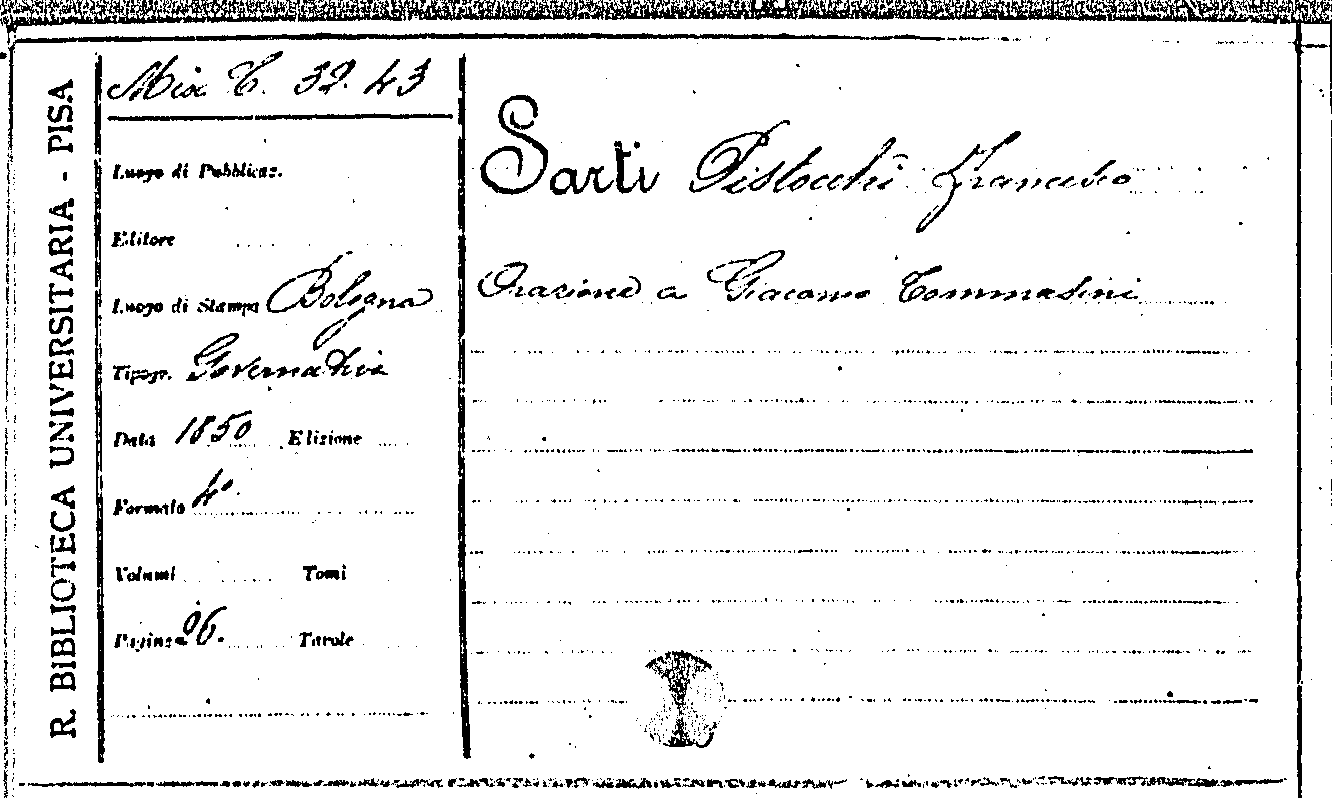 R. BIBLIOTECA UNIVERSITARIA - PISA
Misc. C. 32. 43
Luogo di Pubblicaz.
Editore
Luogo di Stampa Bologna
Tipogr. Governativa
Data 1850 Edizione
Formato 4°.
Volumi Tomi
Pagine 26. Tavole
Sarti Pistocchi Francesco
Orazione a Giacomo Tommasini